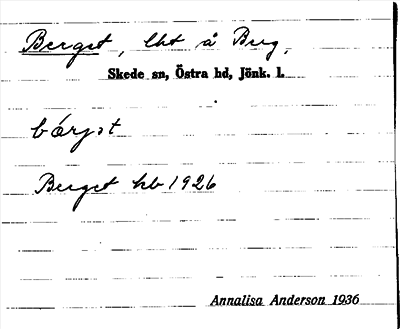 Berget, lht å Berg,
Skede sn, Östra hd, Jönk. l.
bárjət
Berget kb 1926
Annalisa Anderson 1936